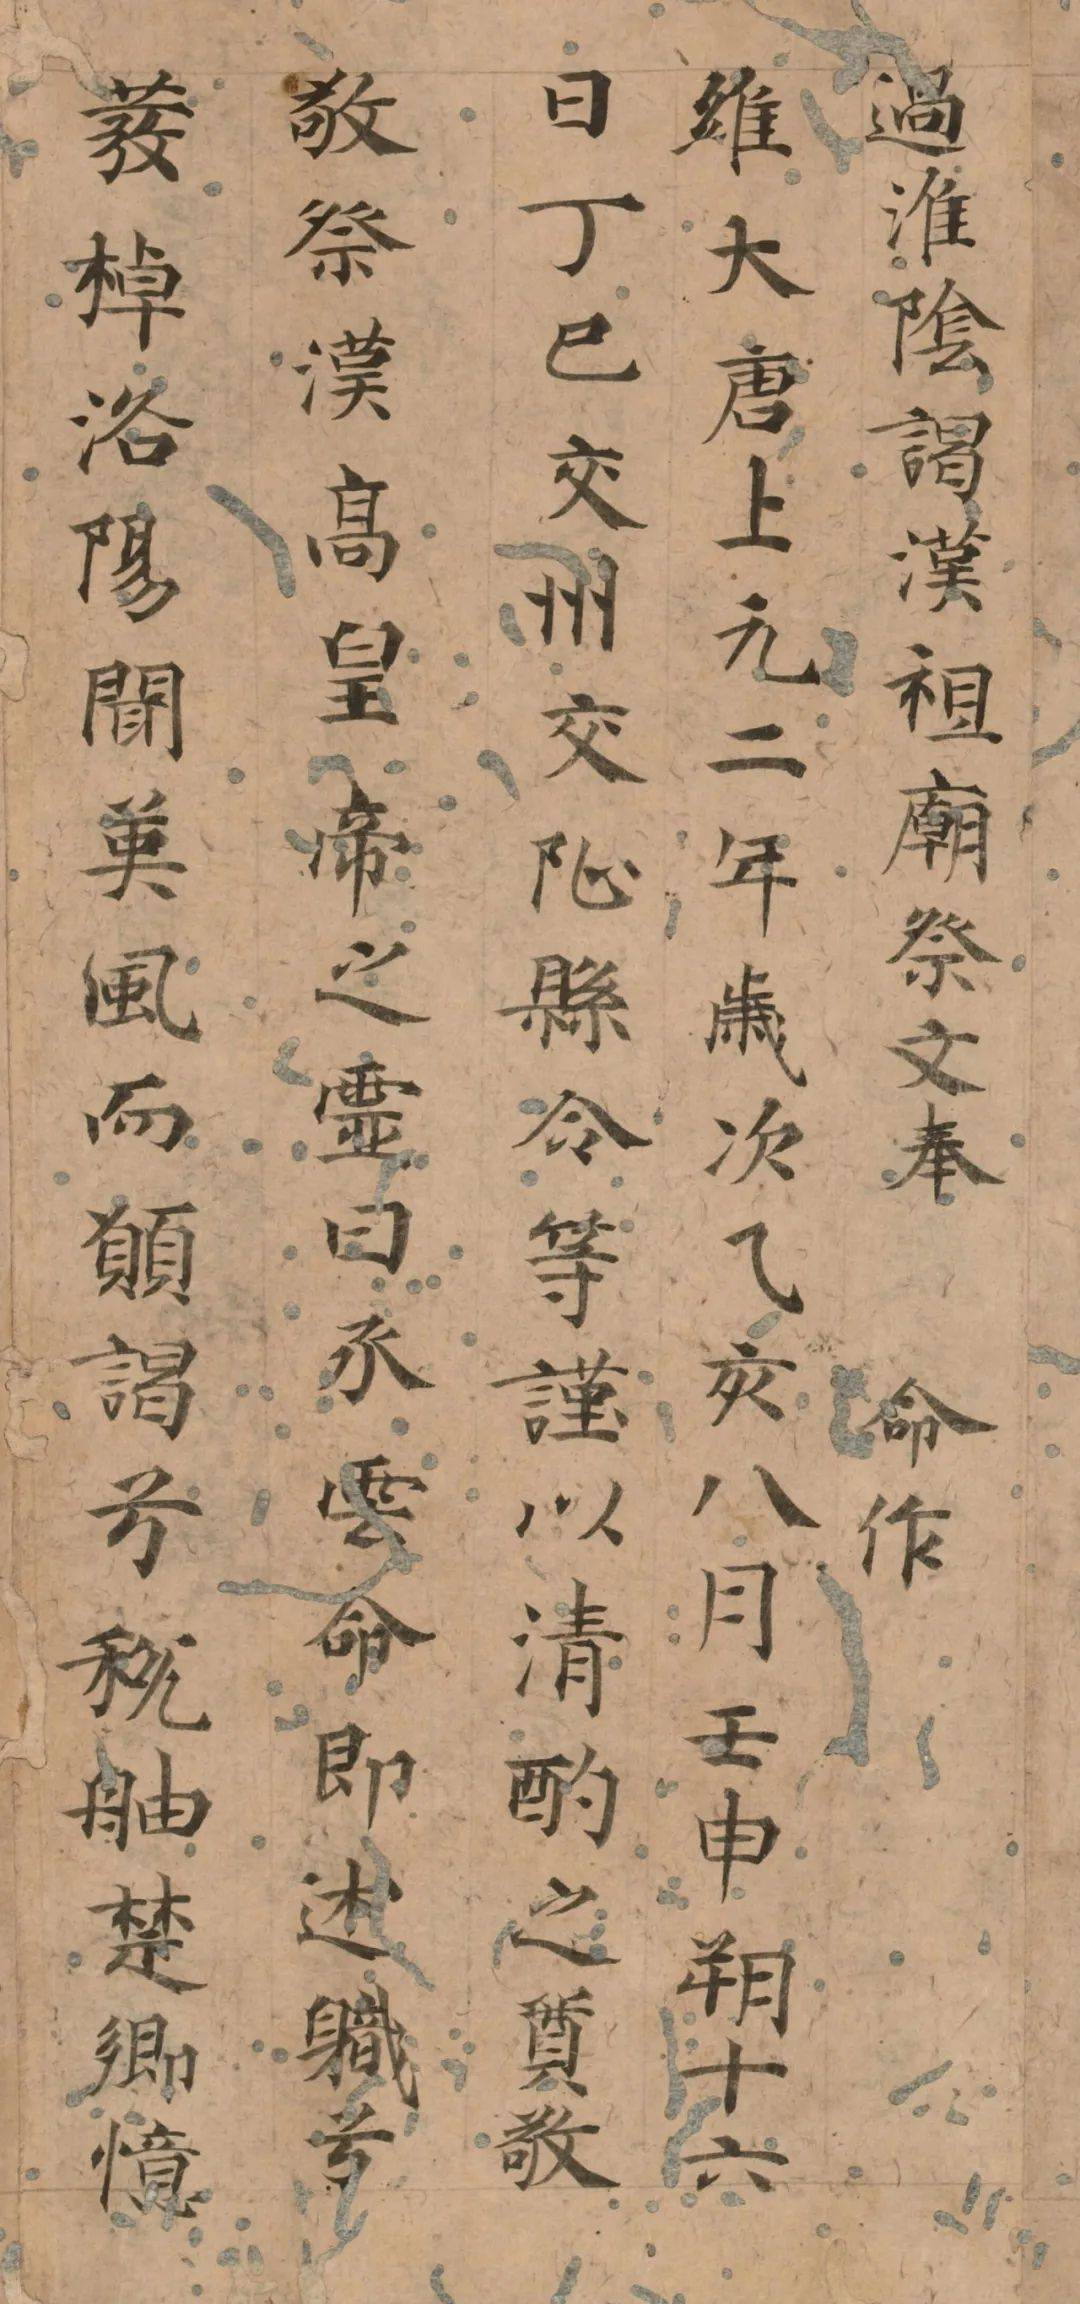 過淮陰謁漢祖廟祭文奉　命作
維大唐上元二年歲次乙亥八月壬申朔十六
日丁巳交州交阯縣令等謹以清酌之奠敬
敬祭漢高皇帝之靈曰承雲命即述職兮
發棹洛陽聞英風而願謁兮稅舳楚卿憶